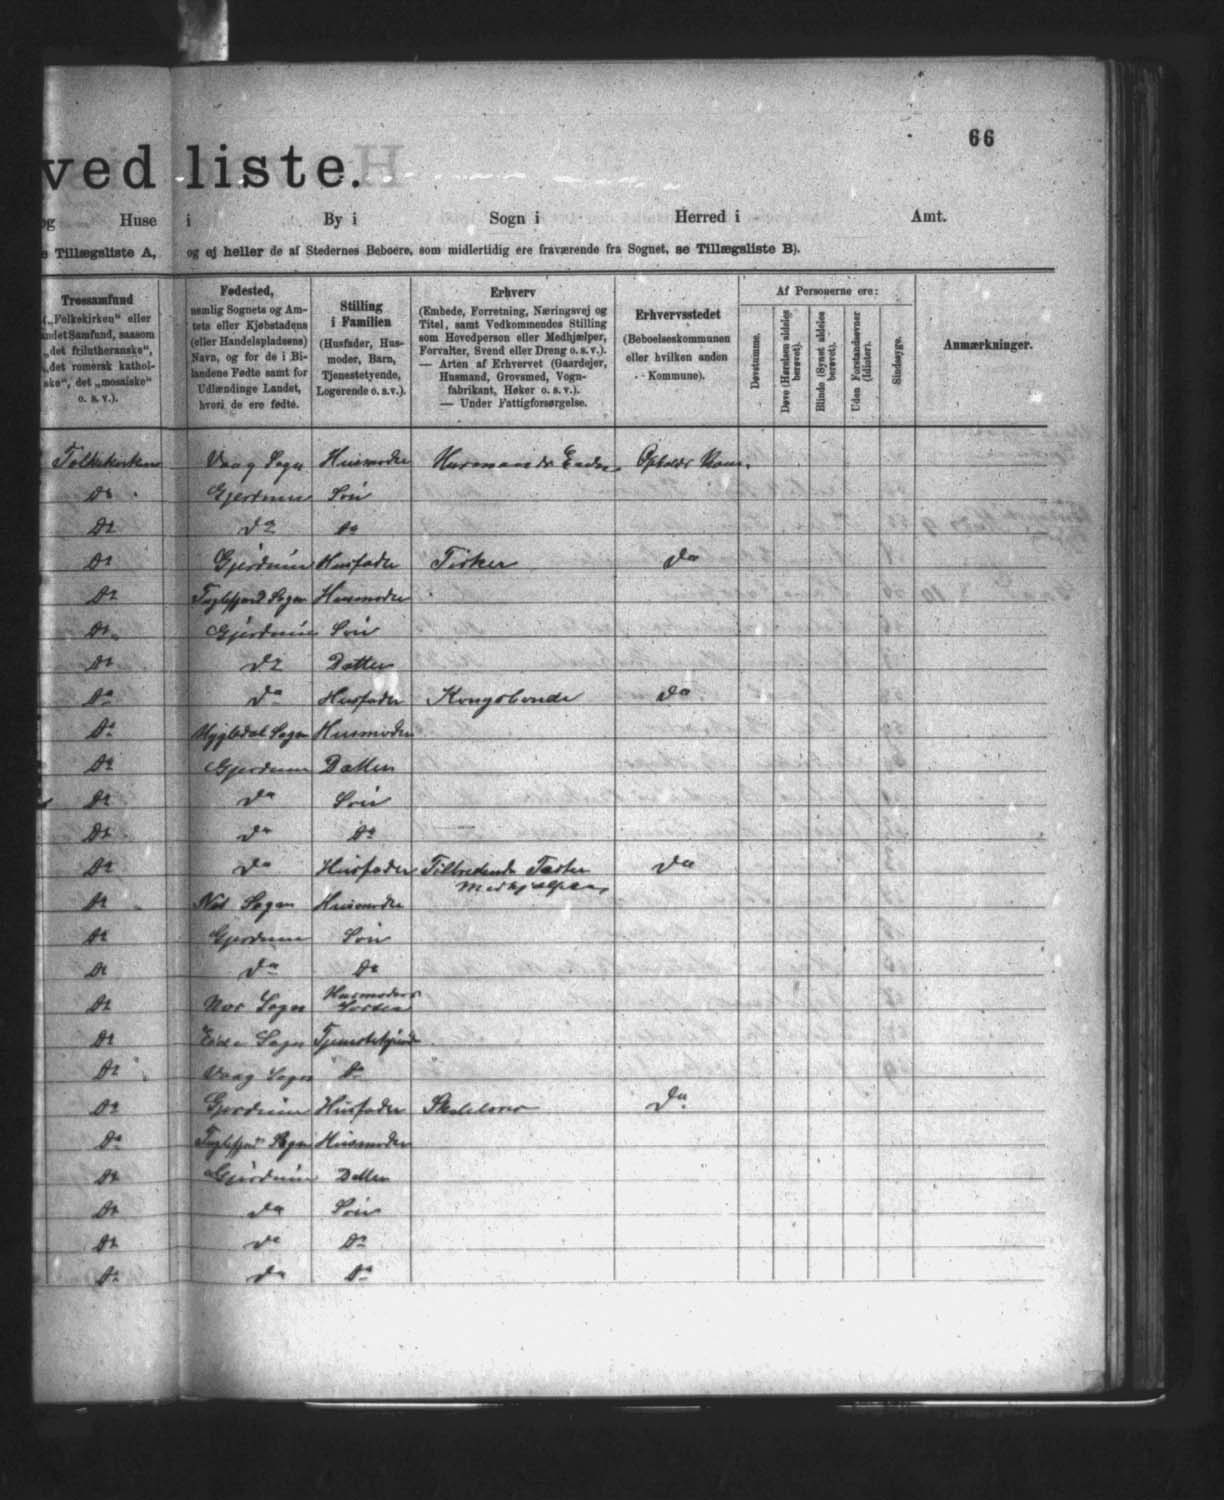 66
ved liste.
og Huse i By i Sogn i Herred i Amt.
e Tillægsliste A, og ej heller de af Stedernes Beboere, som midlertidig ere fraværende fra Sognet, se Tillægsliste B).
Trossamfund
(„Folkekirken“ eller
andet Samfund, saasom
„det frilutheranske“,
„det romersk kathol-
ske“, det „mosaiske“
o. s. v.).
Fødested,
nemlig Sognets og Am-
tets eller Kjøbstadens
(eller Handelspladsens)
Navn, og for de i Bi-
landene Fødte samt for
Udlændinge Landet,
hvori de ere fødte.
Stilling
i Familien
(Husfader, Hus-
moder, Barn,
Tjenestetyende,
Logerende o. s. v.).
Erhverv
(Embede, Forretning, Næringsvej og
Titel, samt Vedkommendes Stilling
som Hovedperson eller Medhjælper,
Forvalter, Svend eller Dreng o. s. v.).
— Arten af Erhvervet (Gaardejer,
Husmand, Grovsmed, Vogn-
fabrikant, Høker o. s. v.).
— Under Fattigforsørgelse.
Erhvervsstedet
(Beboelseskommunen
eller hvilken anden
Kommune).
Af Personerne ere:
Døvstumme.
Døve (Hørelsen aldeles
berøvet).
Blinde (Synet aldeles
berøvet).
Uden Forstandsevner
(Idioter).
Sindssyge.
Anmærkninger.
Folkekirken Vaag Sogn Husmoder
Do Gjerdum Søn
Do Do Do
Do Gjerdum Husfader Fisker Do
Do Fuglefjord Sogn Husmoder
Do Gjerdum Søn
Do Do Datter
Do Do Husfader Kongsbonde Do
Do Sogn Husmoder
Do Gjerdum Datter
Do Do Søn
Do Do Do
Do Do Husfader Tiltrædende Fæster Do
Medhjælper
Do Sogn Husmoder
Do Gjerdum Søn
Do Do Do
Do Sogn Husmoders
Do Sogn
Do Vaag Sogn Do
Do Gjerdum Husfader Skolelærer Do
Do Fuglefjord Sogn Husmoder
Do Gjerdum Datter
Do Do Søn
Do Do Do
Do Do Do